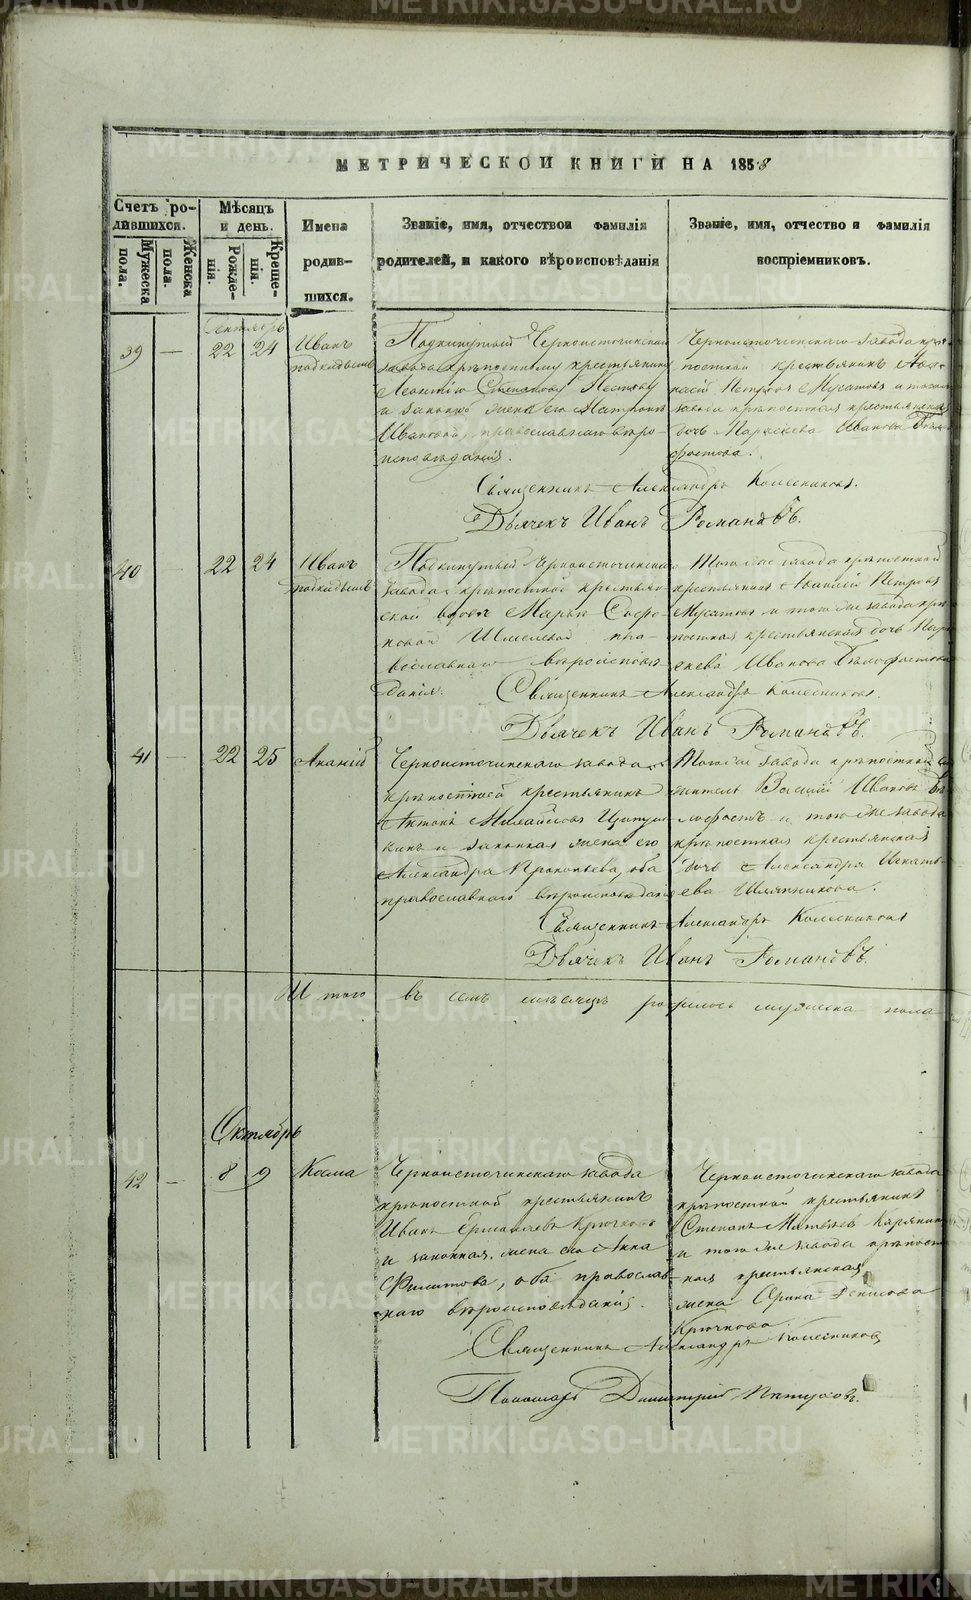 МЕТРИЧЕСКОЙ КНИГИ НА 1858
Счетъ ро-
дившихся.
Мужеска
пола.
Женска
пола.
Мѣсяцъ
и день.
Рожде-
нія.
Креще-
нія.
Имена
родив-
шихся.
Званіе, имя, отчество и фамилія
родителей, и какого вѣроисповѣданія
Званіе, имя, отчество и фамилія
воспріемниковъ.
Сентябрь
39 — 22 24
Иванъ
подкидышъ
Подкинутый Черноисточинскаго
завода крѣпостному крестьянину
Леонтію
и законно жена его Матрона
Ивановой, православнаго вѣро-
исповѣданія.
Черноисточинскаго завода крѣ-
постной крестьянинъ
Петровъ Мусатовъ и того же
завода крѣпостная крестьянская
дочь Параскева Иванова Бѣло-
фостова.
Священникъ Александръ Колесниковъ.
Дьячекъ Иванъ Романовъ.
40 — 22 24
Иванъ
подкидышъ
Подкинутый Черноисточинскаго
завода крѣпостной крестьян-
ской вдовѣ Марьи Софро-
новой пра-
вославнаго вѣроисповѣ-
данія.
Того же завода крѣпостной
крестьянинъ Петровъ
Мусатовъ и того же завода крѣ-
постная крестьянская дочь Пара-
скева Иванова Бѣлофостова
Священникъ Александръ Колесниковъ.
Дьячекъ Иванъ Романовъ.
41 — 22 25
Ананій
Черноисточинскаго завода
крѣпостной крестьянинъ
Антонъ Михайловъ
и законная жена его
Александра Прокопьева, оба
православнаго вѣроисповѣдан
Того же завода крѣпостной
житель Василій Ивановъ Бѣ-
лофостъ и того же завода
крѣпостная крестьянская
дочь Александра Игнать-
ева Шляпникова.
Священникъ Александръ Колесниковъ
Дьячекъ Иванъ Романовъ.
Итого въ семъ мѣсяцѣ родилось мужеска пола
Октябрь
42 — 8 9
Косма
Черноисточинскаго завода
крѣпостной крестьянинъ
Иванъ Ермолаевъ Крючковъ
и законная жена его Анна
Филипова, оба православ-
наго вѣроисповѣданія.
Черноисточинскаго завода
крѣпостной крестьянинъ
Степанъ Матвѣевъ Карякинъ
и того же завода крѣпост-
ная крестьянская
жена Ирина Денисова
Крючкова.
Священникъ Александръ Колесниковъ
Пономарь Димитрій
METRIKI.GASO-URAL.RU